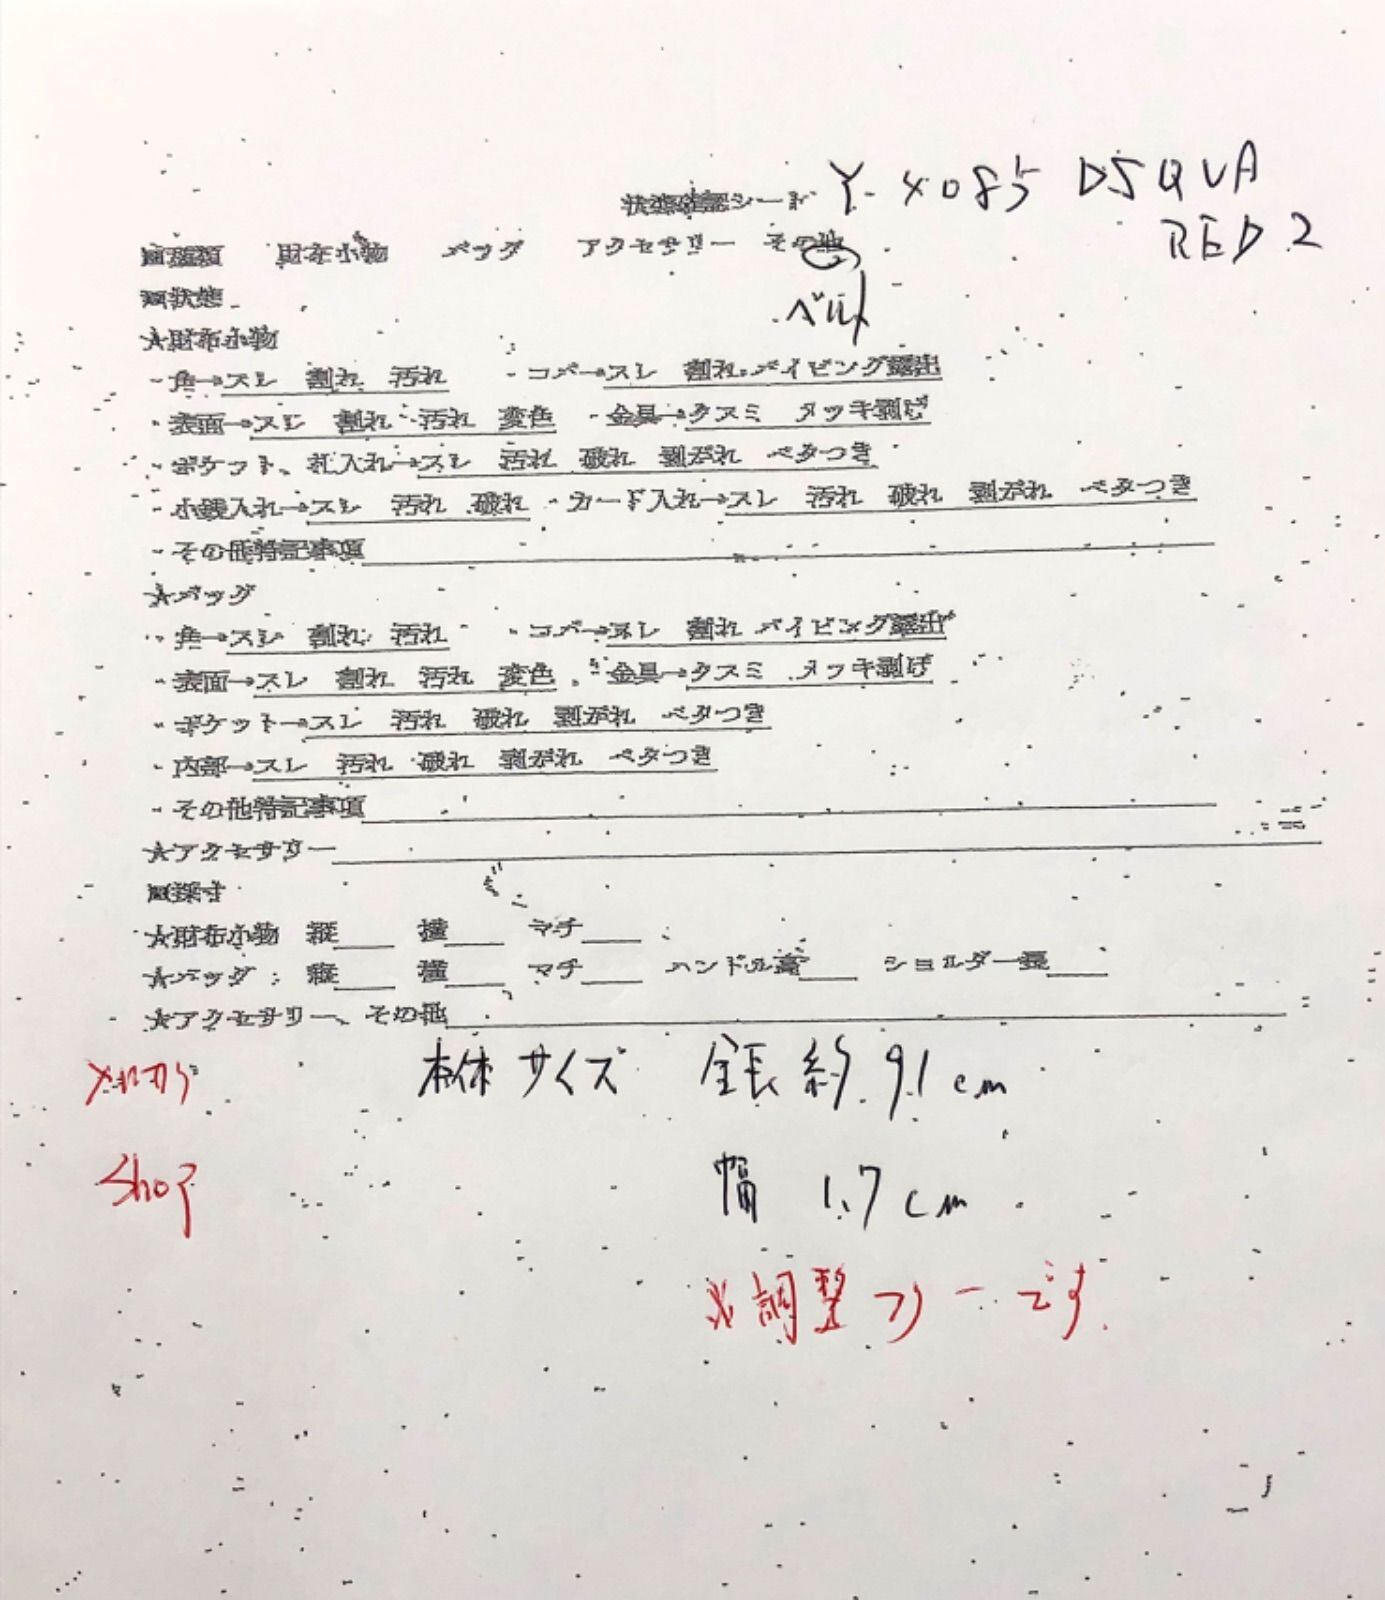 状態確認シート Y-4085 DSQUA
RED2
■種類 財布小物 バッグ アクセサリー その他
ベルト
■状態
★財布小物
・角→スレ 割れ 汚れ ・コバ→スレ 割れ パイピング露出
・表面→スレ 割れ 汚れ 変色 ・金具→クスミ メッキ剥げ
・ポケット、札入れ→スレ 汚れ 破れ 剥がれ ベタつき
・小銭入れ→スレ 汚れ 破れ ・カード入れ→スレ 汚れ 破れ 剥がれ ベタつき
・その他特記事項
★バッグ
・角→スレ 割れ 汚れ ・コバ→スレ 割れ パイピング露出
・表面→スレ 割れ 汚れ 変色 ・金具→クスミ メッキ剥げ
・ポケット→スレ 汚れ 破れ 剥がれ ベタつき
・内部→スレ 汚れ 破れ 剥がれ ベタつき
・その他特記事項
★アクセサリー
■採寸
★財布小物 縦 横 マチ
★バッグ 縦 横 マチ ハンドル高 ショルダー長
★アクセサリー、その他
メルカリ 本体サイズ 全長約91cm
Shop 幅 1.7cm
※調整フリーです